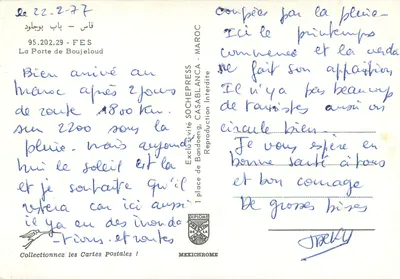 le 22.2.77
فاس - باب بوجلود
95.202.29 - FES
La Porte de Boujeloud
Bien arrivé au
maroc après 2 jours
de route 1800 Km
sur 2200 sous la
pluie. mais aujourd
hui le soleil est là
et je souhaite qu'il
restera car ici aussi
il ya eu des inonda
-tions. et routes
Collectionnez les Cartes Postales !
MEXICHROME
Exclusivité SOCHEPRESS
1 place de Bandoeng, CASABLANCA - MAROC
Reproduction Interdite
coupées par la pluie-
Ici le printemps
commence et la verdu
re fait son apparition
Il n'ya pas beaucoup
de touristes aussi on
circule bien.
Je vous espère en
bonne santé à tous
et bon courage
De grosses bises